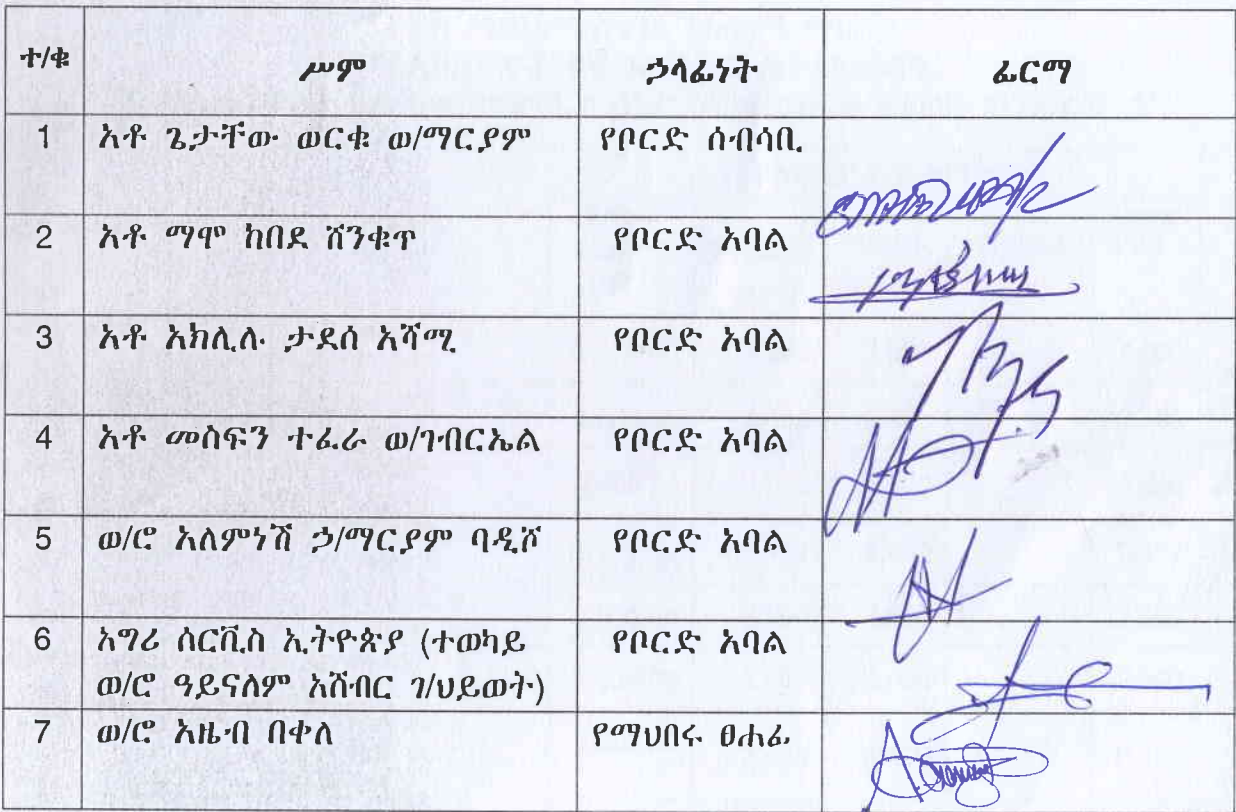 ተ/ቁ ሥም ኃላፊነት ፊርማ
1 አቶ ጌታቸው ወርቁ ወ/ማርያም የቦርድ ሰብሳቢ
2 አቶ ማሞ ከበደ ሽንቁጥ የቦርድ አባል
3 አቶ አክሊሉ ታደሰ አሻሚ የቦርድ አባል
4 አቶ መስፍን ተፈራ ወ/ገብርኤል የቦርድ አባል
5 ወ/ሮ አለምነሽ ኃ/ማርያም ባዲሾ የቦርድ አባል
6 አግሪ ሰርቪስ ኢትዮጵያ (ተወካይ የቦርድ አባል
ወ/ሮ ዓይናለም አሸብር ገ/ህይወት)
7 ወ/ሮ አዜብ በቀለ የማህበሩ ፀሐፊ